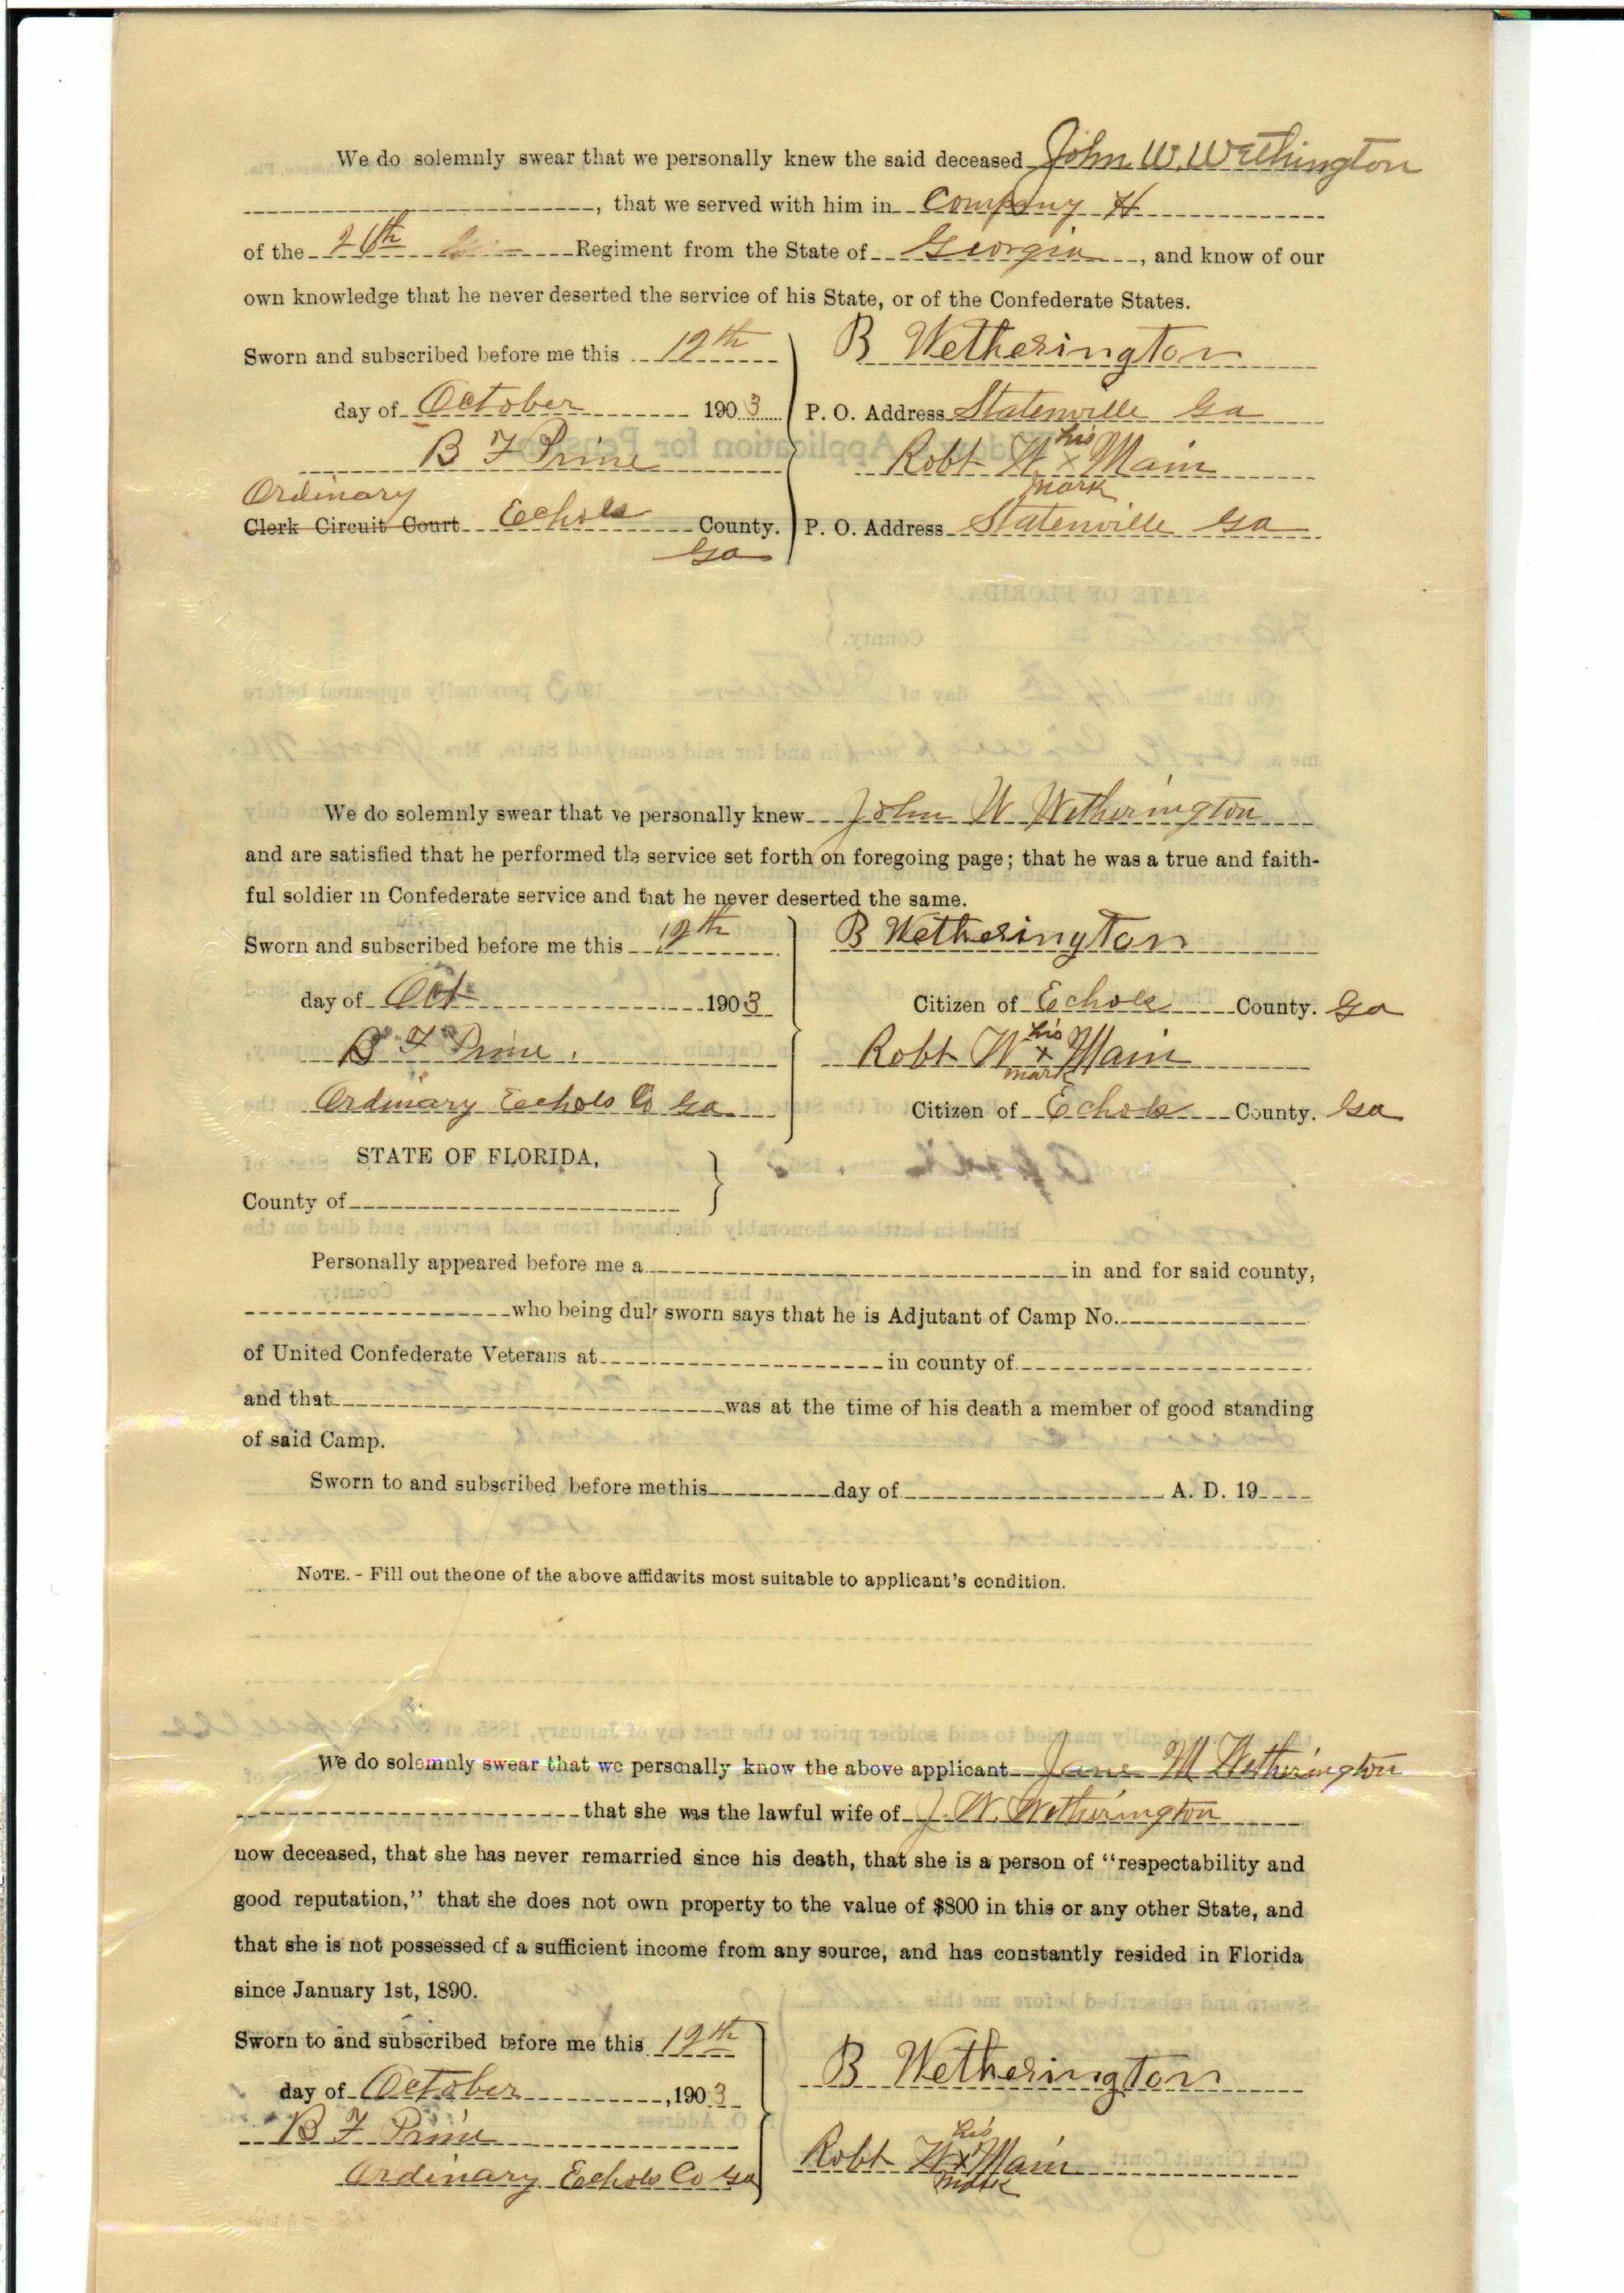 We do solemnly swear that we personally knew the said deceased John W. Wethington
, that we served with him in Company H
of the 26th Regiment from the State of Georgia, and know of our
own knowledge that he never deserted the service of his State, or of the Confederate States.
Sworn and subscribed before me this 12th
day of October 1903
B F Prine
Ordinary
Clerk Circuit Court Echols County.
Ga
B Wetherington
P. O. Address Statenville Ga
his
Robt W x Main
mark
P. O. Address Statenville Ga
We do solemnly swear that we personally knew John W Wetherington
and are satisfied that he performed the service set forth on foregoing page; that he was a true and faith-
ful soldier in Confederate service and that he never deserted the same.
Sworn and subscribed before me this 12th
day of Oct 1903
B F Prine
Ordinary Echols Co Ga
B Wetherington
Citizen of Echols County. Ga
his
Robt W x Main
mark
Citizen of Echols County. Ga
STATE OF FLORIDA,
County of
Personally appeared before me a in and for said county,
who being duly sworn says that he is Adjutant of Camp No.
of United Confederate Veterans at in county of
and that was at the time of his death a member of good standing
of said Camp.
Sworn to and subscribed before me this day of A. D. 19
NOTE. - Fill out the one of the above affidavits most suitable to applicant's condition.
We do solemnly swear that we personally know the above applicant Jane M Wetherington
that she was the lawful wife of J. W. Wetherington
now deceased, that she has never remarried since his death, that she is a person of "respectability and
good reputation," that she does not own property to the value of $800 in this or any other State, and
that she is not possessed of a sufficient income from any source, and has constantly resided in Florida
since January 1st, 1890.
Sworn to and subscribed before me this 12th
day of October, 1903
B F Prine
Ordinary Echols Co Ga
B Wetherington
his
Robt W x Main
mark